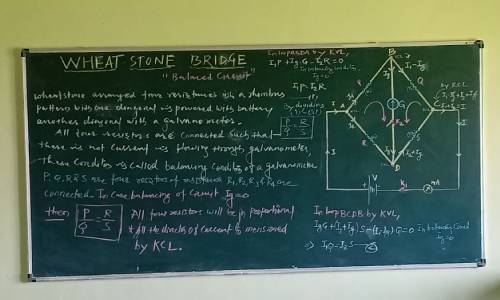 WHEAT STONE BRIDGE
"Balanced Circuit"
wheatstone arranged four resistances in a rhombus
pattern with one diagonal is powered with battery
another diagonal with a galvanometer.
All four resistors are connected such that
there is not current is flowing through galvanometer,
these condition is called balancing condition of a galvanometer
P, Q, R & S are four resistors of resistance R₁, R₂, R₃ & R₄ are
connected. In case balancing of circuit Ig=0
then P/Q = R/S
All four resistors will be in proportional
& All the directions of current is mentioned
by KCL.
In loop ABDA by KVL,
I₁P + Ig.G - I₂R = 0
Ig=0
I₁P = I₂R
By dividing
P/Q = R/S
B
I₁-Ig
P
Q
Ig
G
A
R
S
D
I₂+Ig
by KCL
I
V
mA
In loop BCDB by KVL,
IgG + (I₂+Ig)S - (I₁-Ig)Q = 0
In balancing cond
Ig=0
⇒ I₁Q = I₂S